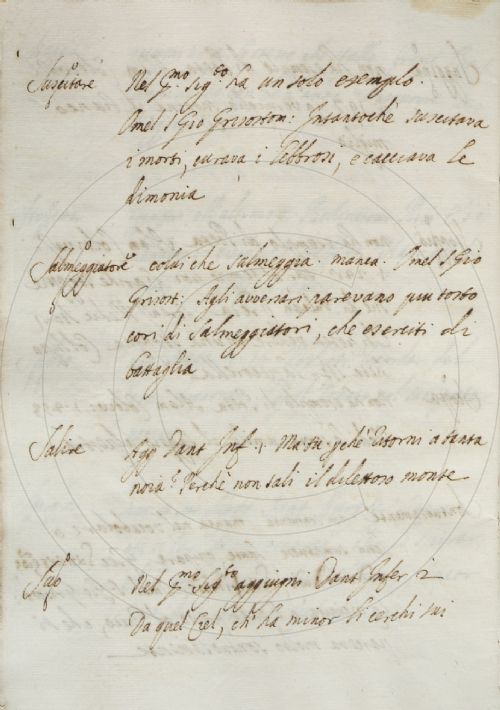 Suscitare Nel p.mo sig.to ha un solo esempio.
Omel S Gio Grisostom: Intantochè suscitava
i morti, curava i lebbrosi, e cacciava le
dimonia
Salmeggiatore colui che salmeggia. manca. Omel S Gio
Grisost: Agli avversari parevano piu tosto
cori di Salmeggiatori, che eserciti di
battaglia
Salire Agg Dant Inf. 1 Ma tu perchè ritorni a tanta
noia? Perchè non sali il dilettoso monte
Nel p.mo Sig.to aggiugni Dant Infer 2
Da quel Ciel, ch'ha minor li cerchi sui